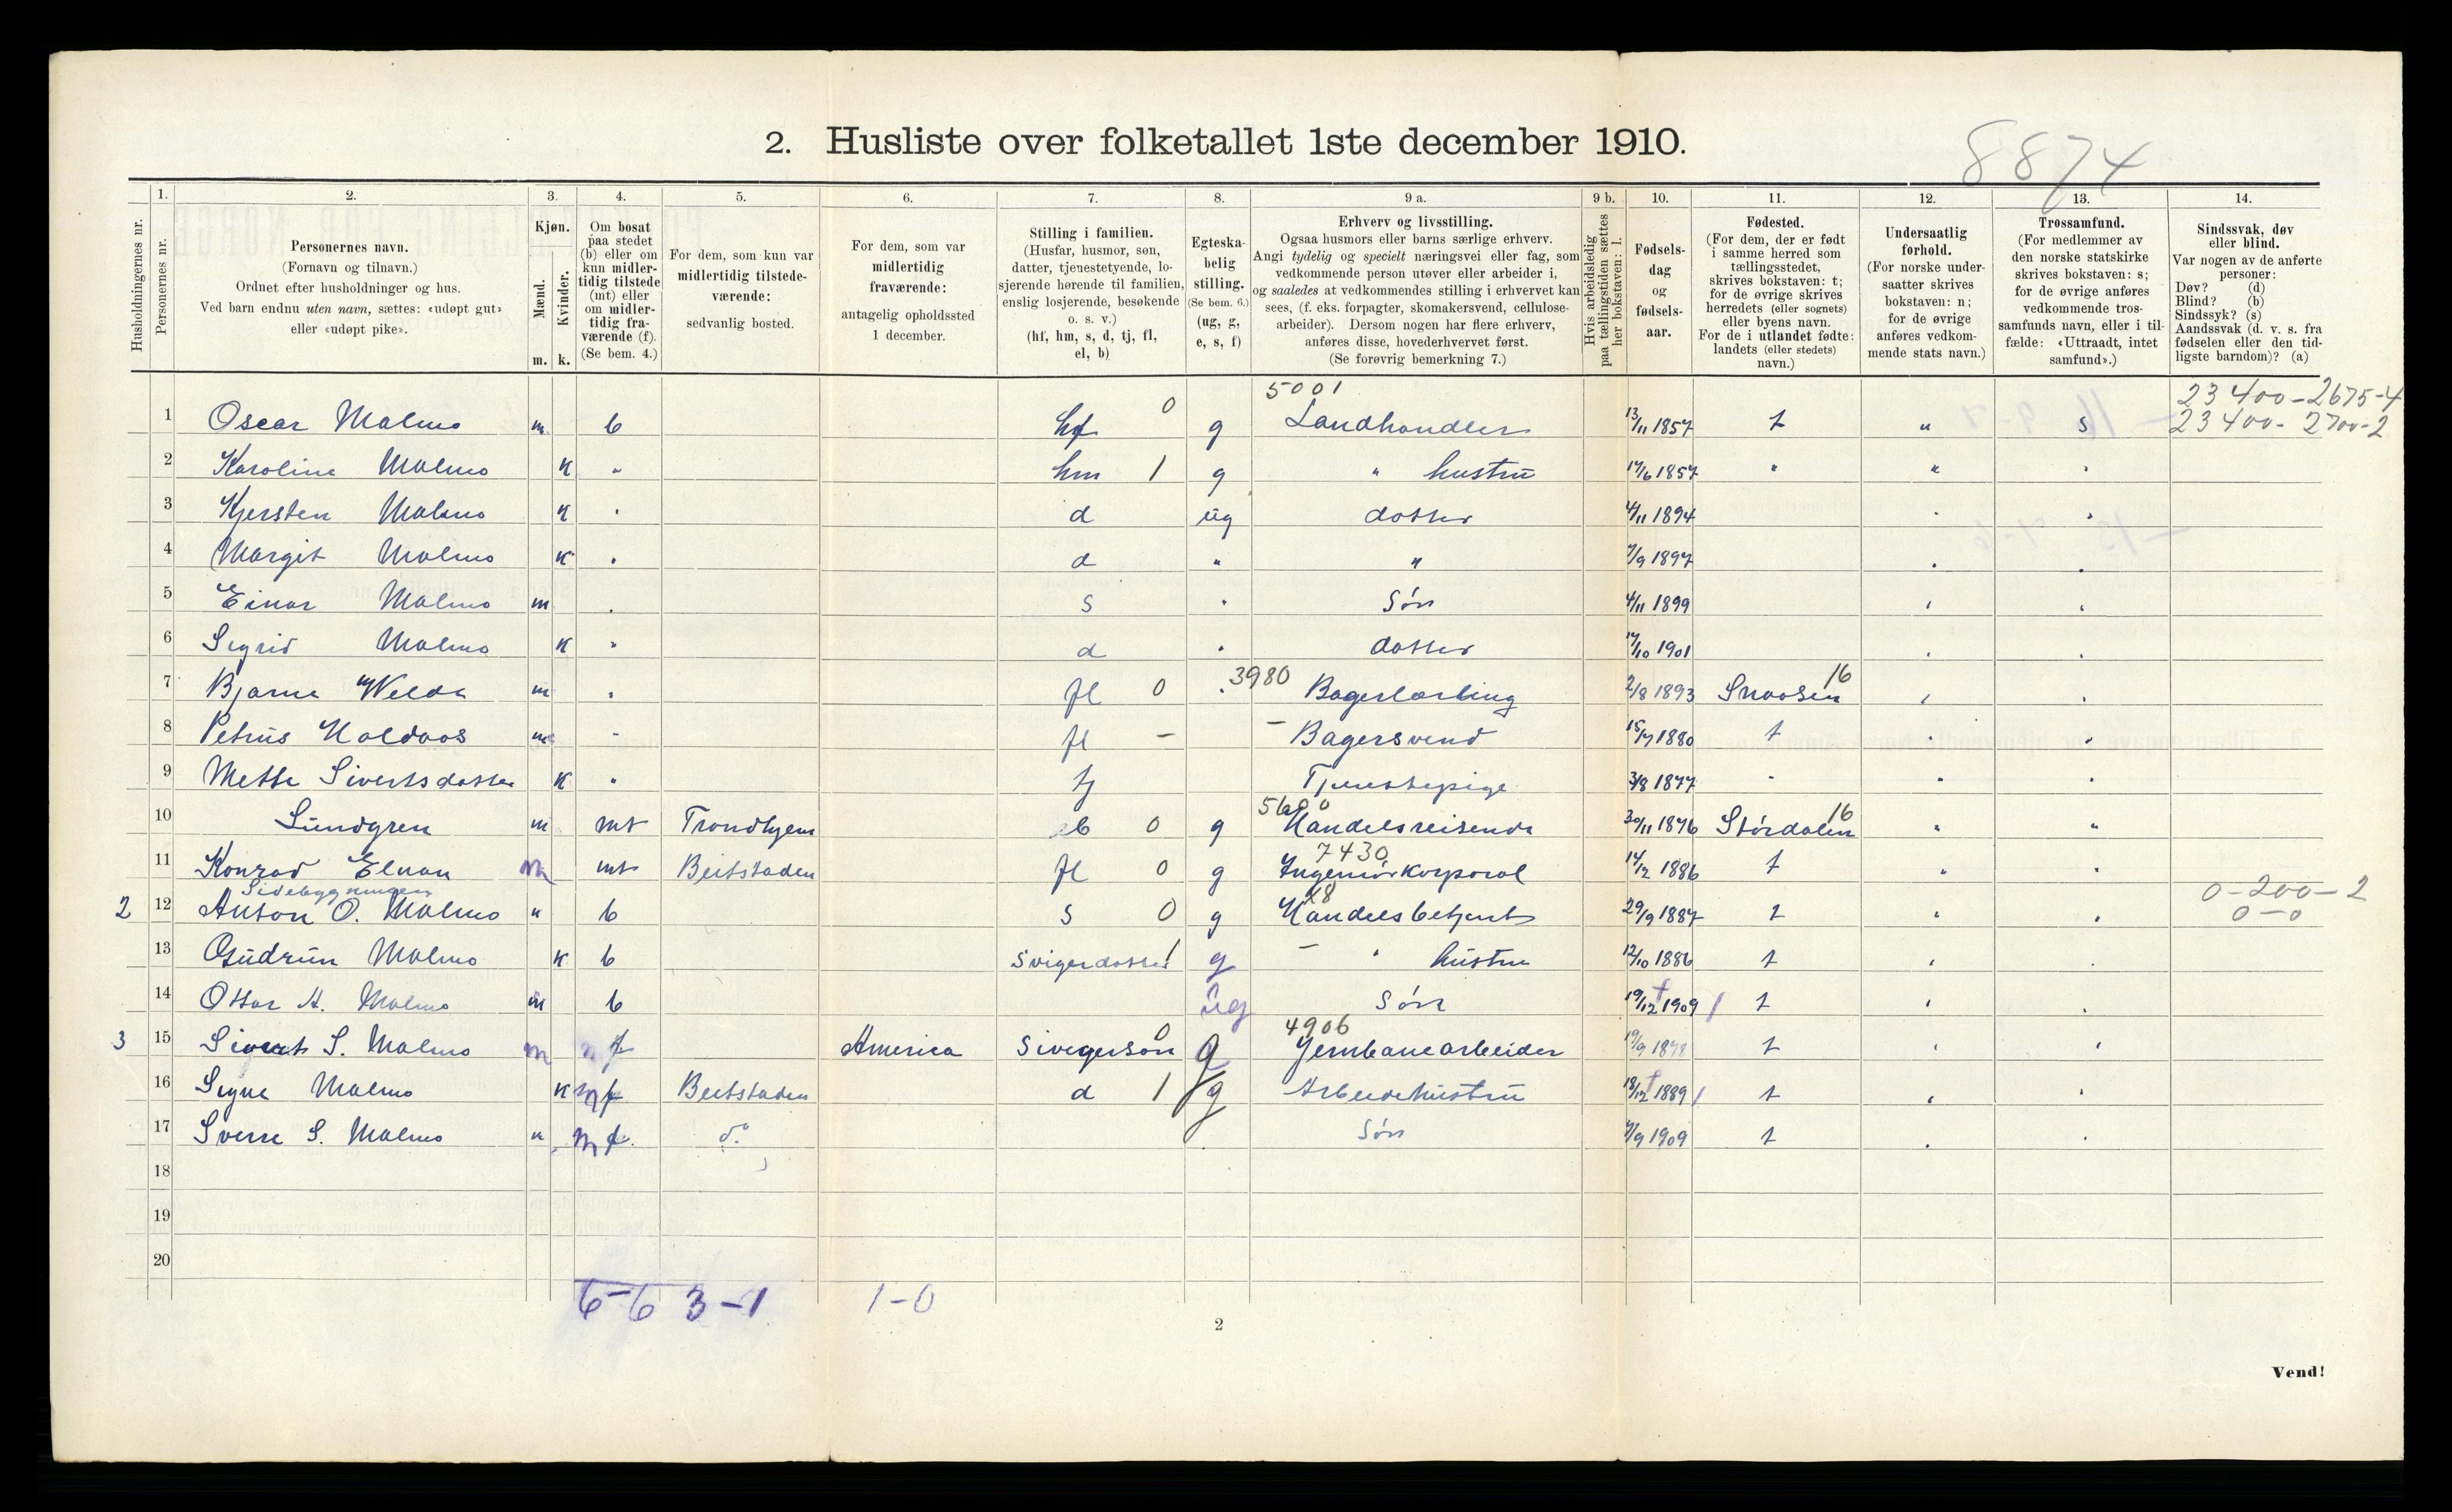 2. Husliste over folketallet 1ste december 1910.
8874
Husholdningernes nr.
1. Personernes nr.
2. Personernes navn.
(Fornavn og tilnavn.)
Ordnet efter husholdninger og hus.
Ved barn endnu uten navn, sættes: «udøpt gut»
eller «udøpt pike».
3. Kjøn.
Mænd. Kvinder.
m. k.
4. Om bosat
paa stedet
(b) eller om
kun midler-
tidig tilstede
(mt) eller
om midler-
tidig fra-
værende (f).
(Se bem. 4.)
5. For dem, som kun var
midlertidig tilstede-
værende:
sedvanlig bosted.
6. For dem, som var
midlertidig
fraværende:
antagelig opholdssted
1 december.
7. Stilling i familien.
(Husfar, husmor, søn,
datter, tjenestetyende, lo-
sjerende hørende til familien,
enslig losjerende, besøkende
o. s. v.)
(hf, hm, s, d, tj, fl,
el, b)
8. Egteska-
belig
stilling.
(Se bem. 6.)
(ug, g,
e, s, f)
9 a. Erhverv og livsstilling.
Ogsaa husmors eller barns særlige erhverv.
Angi tydelig og specielt næringsvei eller fag, som
vedkommende person utøver eller arbeider i,
og saaledes at vedkommendes stilling i erhvervet kan
sees, (f. eks. forpagter, skomakersvend, cellulose-
arbeider). Dersom nogen har flere erhverv,
anføres disse, hovederhvervet først.
(Se forøvrig bemerkning 7.)
9 b. Hvis arbeidsledig
paa tællingstiden sættes
her bokstaven: l.
10. Fødsels-
dag
og
fødsels-
aar.
11. Fødested.
(For dem, der er født
i samme herred som
tællingsstedet,
skrives bokstaven: t;
for de øvrige skrives
herredets (eller sognets)
eller byens navn.
For de i utlandet fødte:
landets (eller stedets)
navn.)
12. Undersaatlig
forhold.
(For norske under-
saatter skrives
bokstaven: n;
for de øvrige
anføres vedkom-
mende stats navn.)
13. Trossamfund.
(For medlemmer av
den norske statskirke
skrives bokstaven: s;
for de øvrige anføres
vedkommende tros-
samfunds navn, eller i til-
fælde: «Uttraadt, intet
samfund».)
14. Sindssvak, døv
eller blind.
Var nogen av de anførte
personer:
Døv? (d)
Blind? (b)
Sindssyk? (s)
Aandssvak (d. v. s. fra
fødselen eller den tid-
ligste barndom)? (a)
5001 23400-2675-4
1 Oscar Malmo m b hf 0 g Landhandler 13/11 1857 t n s 23400-2700-2
2 Karoline Malmo k " hm 1 g " hustru 1857 " " "
3 Kjersten Malmo k " d ug dotter 4/11 1894 " "
4 Margit Malmo k " d " " 7/9 1897 " "
5 Einar Malmo m " s " Søn 4/11 1899 " "
6 Sigrid Malmo k " d " dotter 1901 " "
3980 16
7 Bjarne Welde m " fl 0 " Bagerlærling 2/8 1893 Snaasen " "
8 Petrus Haldaas m " fl - - Bagersvend 1880 t " "
9 Mette Sivertsdatter k " tj Tjenestepige 3/8 1877 " " "
5600 16
10 Lundgren m mt Trondhjem b 0 g Handelsreisende 30/11 1876 Størdalen " "
7430
11 Konrad Elnan m mt Beitstaden fl 0 g Ingeniørkorporal 14/12 1886 t " "
Sidebygningen 0-200-2
2 12 Anton O. Malmo " b s 0 g Handelsbetjent 29/9 1887 t " " 0-0
13 Gudrun Malmo k b Svigerdatter 1 g - " hustru 12/10 1886 t " "
14 Ottar A. Malmo m b ug Søn 19/12 1909 t " "
4906
3 15 Sivert S. Malmo m f America Svigersøn 0 g Jernbanearbeider 1878 t " "
16 Signe Malmo k Beitstaden d 1 g Arbeidehustru 18/12 1889 t " "
17 Sverre S. Malmo " do Søn 1909 t " "
18
19
20
6-6 3-1 1-0
2
Vend!